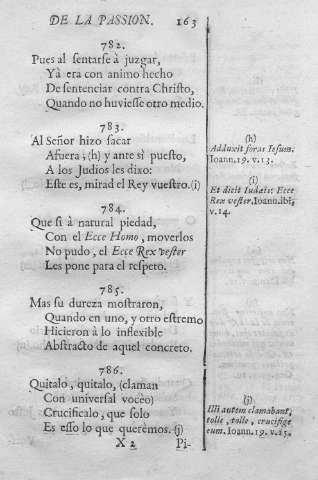 DE LA PASSION. 163
782.
Pues al sentarse à juzgar,
Yà era con animo hecho
De sentenciar contra Christo,
Quando no huviesse otro medio.
783.
Al Señor hizo sacar
Afuera, (h) y ante sì puesto,
A los Judios les dixo:
Este es, mirad el Rey vuestro. (i)
784.
Que si à natural piedad,
Con el Ecce Homo, moverlos
No pudo, el Ecce Rex vester
Les pone para el respeto.
785.
Mas su dureza mostraron,
Quando en uno, y otro estremo
Hicieron à lo inflexible
Abstracto de aquel concreto.
786.
Quitalo, quitalo, (claman
Con universal vocèo)
Crucificalo, que solo
Es esso lo que querèmos. (j)
X 2 Pi-
(h)
Adduxit foras Iesum.
Ioann. 19. v. 13.
(i)
Et dicit Iudæis: Ecce
Rex vester. Ioann. ibi,
v. 14.
(j)
Illi autem clamabant,
tolle, tolle, crucifige
eum. Ioann. 19. v. 15.